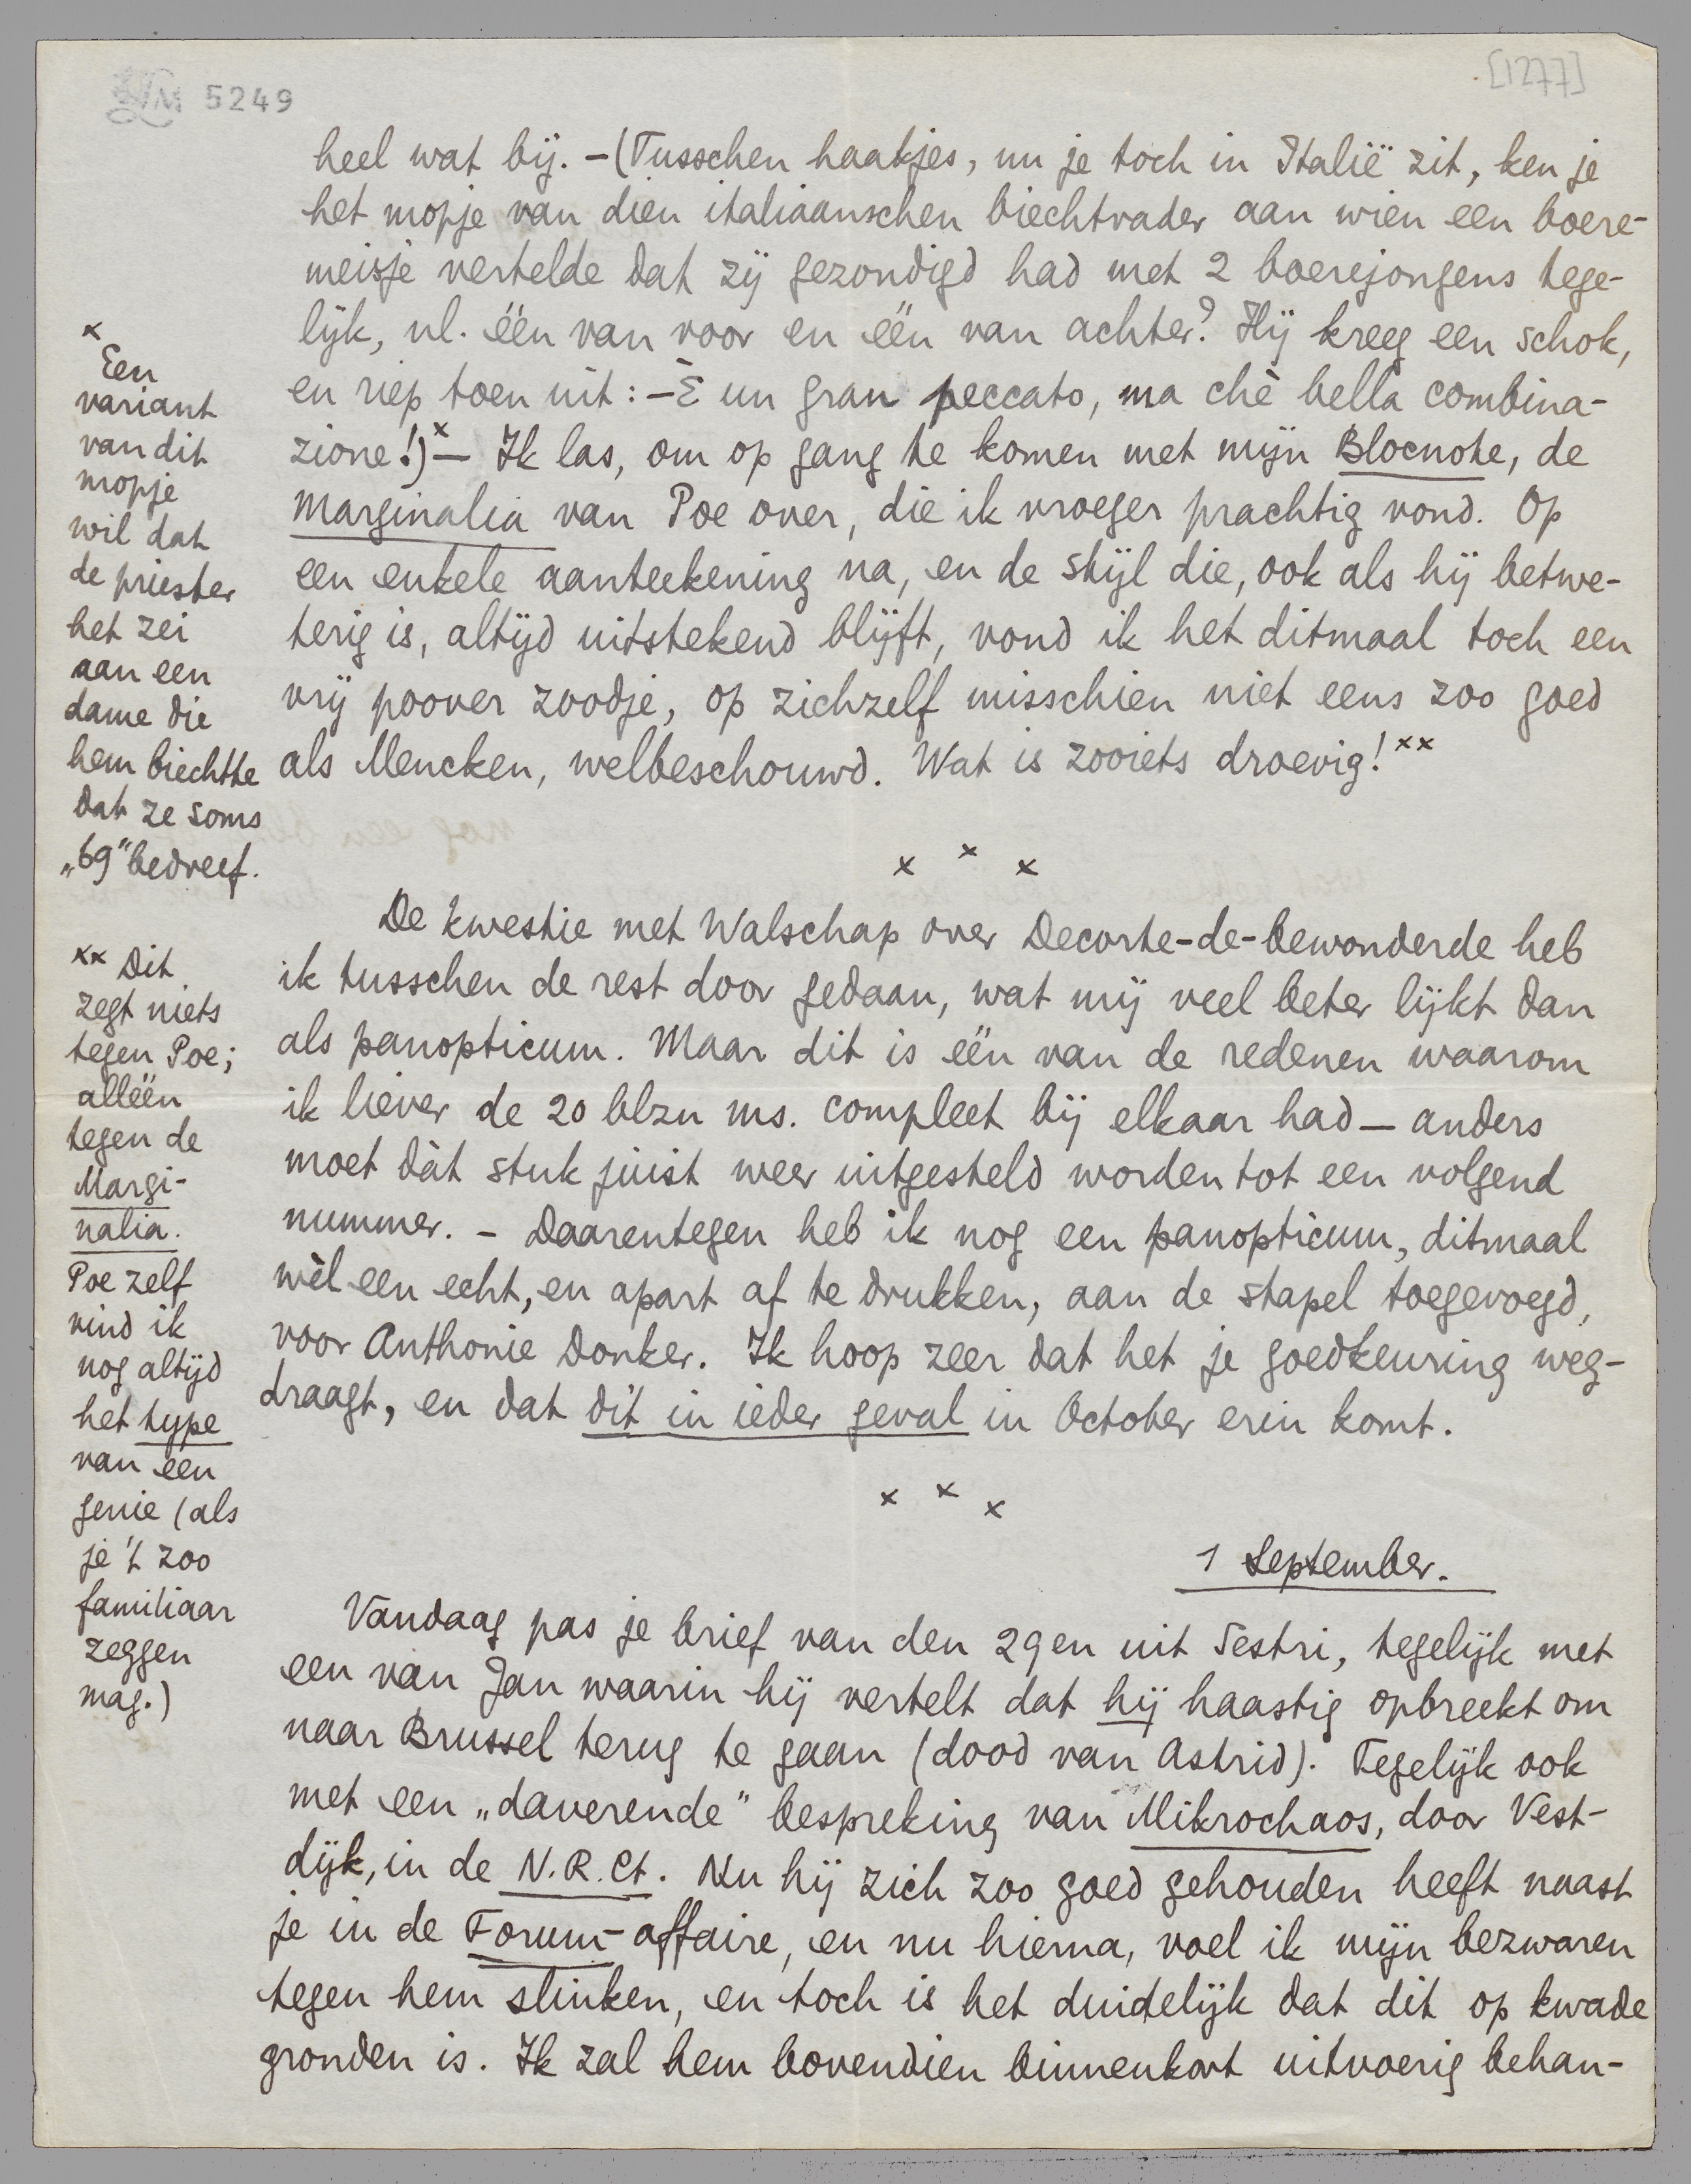 LM 5249
[1277]
heel wat bij. – (Tusschen haakjes, nu je toch in Italië zit, ken je
het mopje van dien italiaanschen biechtvader aan wien een boere-
meisje vertelde dat zij gezondigd had met 2 boerejongens tege-
lijk, nl. één van voor en één van achter? Hij kreeg een schok,
en riep toen uit: – È un gran peccato, ma chè bella combina-
zione!)x – Ik las, om op gang te komen met mijn Blocnote, de
Marginalia van Poe over, die ik vroeger prachtig vond. Op
een enkele aanteekening na, en de stijl die, ook als hij betwe-
terig is, altijd uitstekend blijft, vond ik het ditmaal toch een
vrij poover zoodje, op zichzelf misschien niet eens zoo goed
als Mencken, welbeschouwd. Wat is zooiets droevig! xx
x x x
De kwestie met Walschap over Decorte-de-bewonderde heb
ik tusschen de rest door gedaan, wat mij veel beter lijkt dan
als panopticum. Maar dit is één van de redenen waarom
ik liever de 20 blzn ms. compleet bij elkaar had – anders
moet dàt stuk juist weer uitgesteld worden tot een volgend
nummer. – Daarentegen heb ik nog een panopticum, ditmaal
wèl een echt, en apart af te drukken, aan de stapel toegevoegd,
voor Anthonie Donker. Ik hoop zeer dat het je goedkeuring weg-
draagt, en dat dit in ieder geval in October erin komt.
x x x
1 September.
Vandaag pas je brief van den 29en uit Sestri, tegelijk met
een van Jan waarin hij vertelt dat hij haastig opbreekt om
naar Brussel terug te gaan (dood van Astrid). Tegelijk ook
met een „daverende" bespreking van Mikrochaos, door Vest-
dijk, in de N.R.Ct. Nu hij zich zoo goed gehouden heeft naast
je in de Forum-affaire, en nu hierna, voel ik mijn bezwaren
tegen hem slinken, en toch is het duidelijk dat dit op kwade
gronden is. Ik zal hem bovendien binnenkort uitvoerig behan-
x
Een
variant
van dit
mopje
wil dat
de priester
het zei
aan een
dame die
hem biechtte
dat ze soms
„69" bedreef.
xx Dit
zegt niets
tegen Poe;
alléén
tegen de
Margi-
nalia.
Poe zelf
vind ik
nog altijd
het type
van een
genie (als
je 't zoo
familiaar
zeggen
mag.)